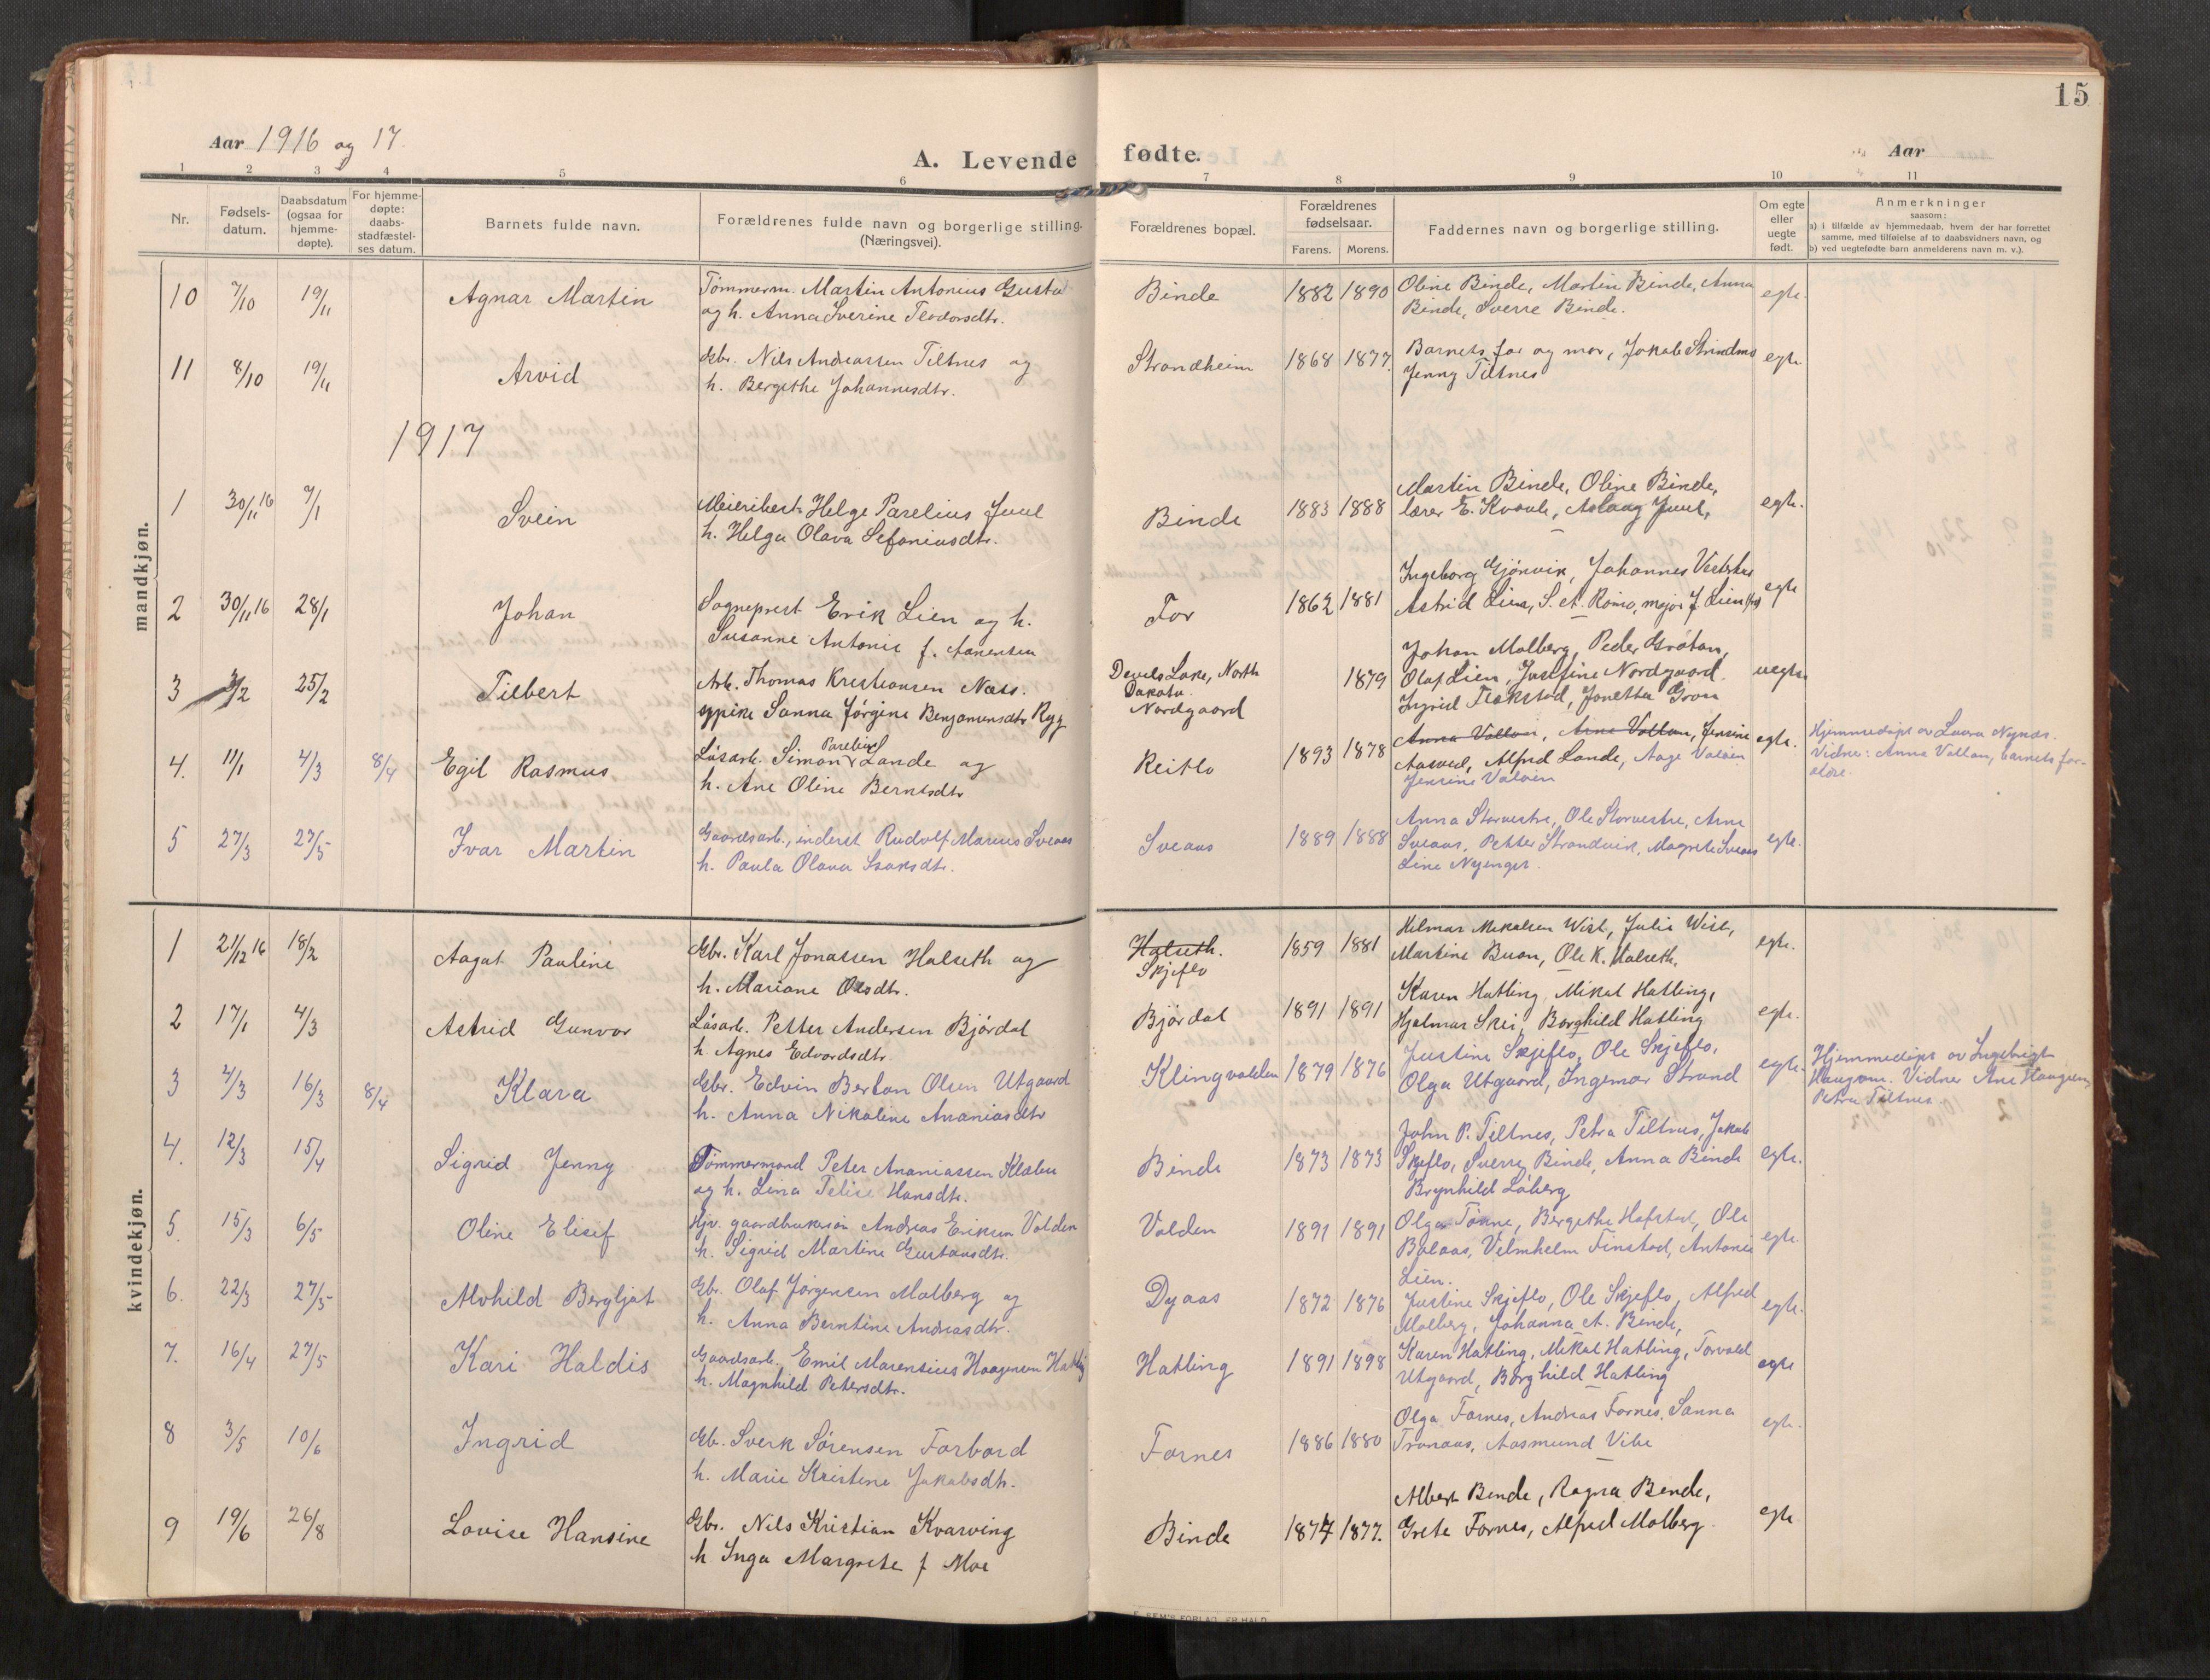 15
Aar 1916 og 17.
A. Levende fødte.
Aar
1 2 3 4 5 6 7 8 9 10 11
Nr.
Fødsels-
datum.
Daabsdatum
(ogsaa for
hjemme-
døpte).
For hjemme-
døpte:
daabs-
stadfæstel-
ses datum.
Barnets fulde navn.
Forældrenes fulde navn og borgerlige stilling.
(Næringsvei).
Forældrenes bopæl.
Forældrenes
fødselsaar.
Farens. Morens.
Faddernes navn og borgerlige stilling.
Om egte
eller
uegte
født.
Anmerkninger
saasom:
a) i tilfælde av hjemmedaab, hvem der har forrettet
samme, med tilføielse af to daabsvidners navn, og
b) ved uegtefødte barn anmelderens navn m. v.).
mandkjøn.
10 7/10 19/11 Agnar Martin Tømmerm. Martin Antonius Gusta Binde 1882 1890 Oline Binde, Martin Binde, Anna egte.
og h. Anna Sverine Teodorsdtr. Binde, Sverre Binde.
11 8/10 19/11 Arvid Gbr. Nils Andreassen Tiltnes og Strandheim 1868 1877. Barnets far og mor, Jakob Strindmo egte.
h. Bergithe Johannesdtr. Jenny Tiltnes
1917
1 30/11 16 7/1 Svein Meieribest. Helge Parelius Juul Binde 1883 1888 Martin Binde, Oline Binde, egte.
h. Helga Olava Sefaniasdtr. lærer E. Kvaale, Aslaug Juul,
2 30/11 16 28/1 Johan Sogneprest Erik Lien og h. For 1862 1881 Ingeborg Gjønvik, Johannes egte
Susanne Antonie f. Aanensen Astrid Lien, S. A. Romo, major J. Lien
3 3/2 25/2 Tilbert Arb. Thomas Kristiansen Næss. Devils Lake, North 1879 Johan Molberg, Peder Grøtan, uegte
Dakota.
pike Sanna Jørgine Benjaminsdtr Ryg Nordgaard Olaf Lien, Justine Nordgaard.
Ingrid Flekstad, Jonetta Gran
4. 11/1 4/3 8/4 Egil Rasmus Løsarb. Simon Parelius Lande og Reitlo 1893 1878 Anna Vollan, Arne Vollan, Jensine egte. Hjemmedøpt av Laura Nynæs.
h. Ane Oline Berntsdtr Aasved, Alfred Lande, Aage Valøen Vidner: Anna Vollan, barnets for-
Jensine Valøen ældre.
5 27/3 27/5 Ivar Martin Gaardsarb., inderst Rudolf Marius Sveaas Sveaas 1889 1888 Anna Storvestre, Ole Storvestre, Arne egte.
h. Paula Olava Isaksdtr. Sveaas, Petter Strandvik, Magrete Sveaas
Line Nyenget.
kvindekjøn.
1 21/12 16 18/2 Aagot Pauline Gbr. Karl Jonassen Halseth og Halseth. 1859 1881 Hilmar Mikalsen Wist, Julie Wist, egte.
h. Mariane Olsdtr. Skjeflo Martine Buan, Ole K. Halseth.
2 17/1 4/3 Astrid Gunvor Løsarb. Petter Andersen Bjørdal Bjørdal 1891 1891 Karen Hatling, Mikal Hatling, egte.
h. Agnes Edvardsdtr. Hjalmar Skei, Borghild Hatling
3 4/3 16/3 8/4 Klara Gbr. Edvin Berton Olsen Utgaard Klingvolden 1879 1876 Justine Skjeflo, Ole Skjeflo, egte. Hjemmedøpt av Ingebrigt
h. Anna Nikoline Ananiasdtr Olga Utgaard, Ingemar Strand Haugum. Vidner Ane Haagum
Petra Tiltnes.
4. 12/3 15/4 Sigrid Jenny Tømmermand Peter Ananiassen Klæbu Binde 1873 1873 John P. Tiltnes, Petra Tiltnes, Jakob egte.
og h. Lina Telise Hansdtr. Skjeflo, Sverre Binde, Anna Binde
Brynhild Løberg
5. 15/3 6/5 Oline Elisef Hjv. gaardbrukersøn Andreas Eriksen Volden Volden 1891 1891 Olga Tønne, Bergithe Hafstad, Ole egte.
h. Sigrid Martine Gustavsdtr. Bølaas, Vilmhelm Finstad, Antonie
Lien.
6. 22/3 27/5 Alvhild Bergljot Gbr. Olaf Jørgensen Molberg og Dyaas 1872 1876 Justine Skjeflo, Ole Skjeflo, Alfred egte.
h. Anna Berntine Andreasdtr. Molberg, Johanna A. Binde,
7. 16/4 27/5 Kari Haldis Gaardsarb. Emil Marensius Haagensen Hatling Hatling 1891 1898 Karen Hatling, Mikal Hatling, Torvald egte
h. Magnhild Petersdtr. Utgaard, Borghild Hatling
8 3/5 10/6 Ingrid Gb. Sverk Sørensen Forbord Fornes 1886 1880 Olga Fornes, Andreas Fornes, Sanna egte.
h. Marie Kristine Jakobsdtr. Tronaas, Aasmund Vibe
9 19/6 26/8 Lovise Hansine Gbr. Nils Kristian Kvarving Binde 1874 1877. Albert Binde, Ragna Binde, egte
h Inga Margrete f Moe Grete Fornes, Alfred Molberg.